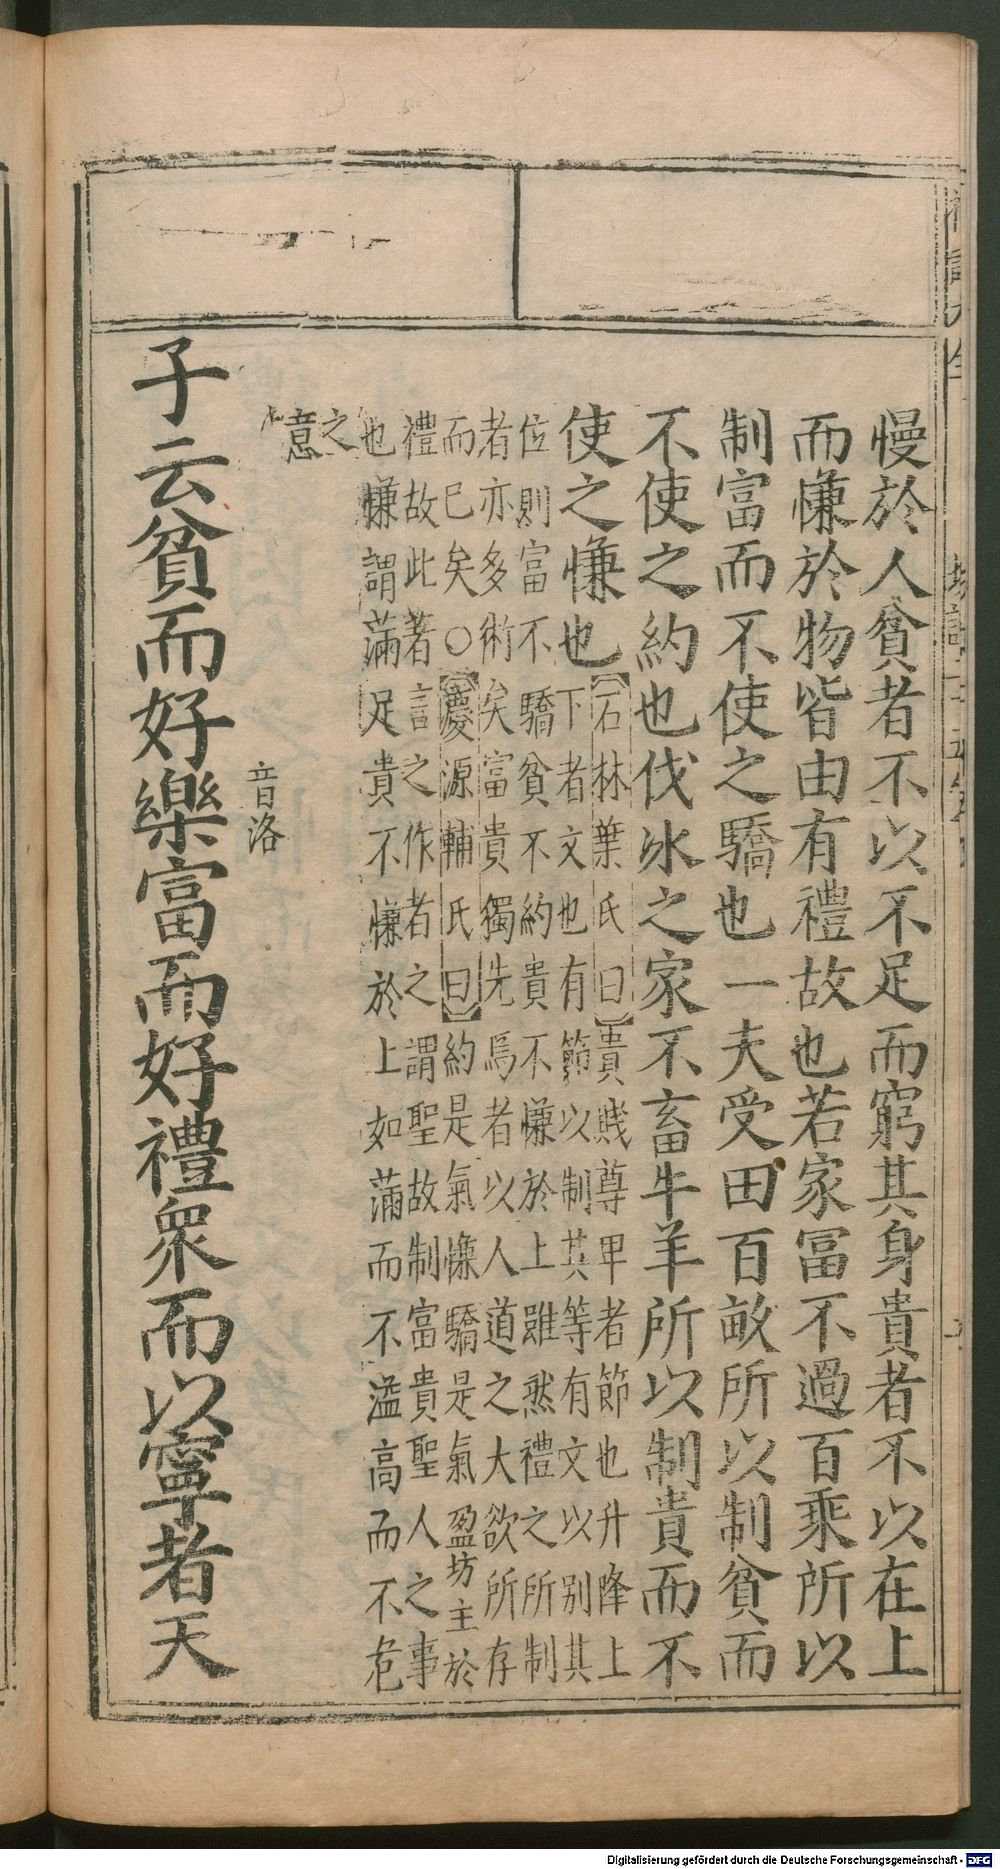 慢於人貧者不以不足而窮其身貴者不以在上
而慊於物皆由有禮故也若家冨不過百乘所以
制富而不使之驕也一夫受田百畝所以制貧而
不使之約也伐氷之家不畜牛羊所以制貴而不
使之慊也【石林葉氏曰】貴賤尊卑者節也升降上
下者文也有節以制其等有文以別其
位則富不驕貧不約貴不慊於上雖然禮之所制
者亦多術矣富貴獨先焉者以人道之大欲所存
而已矣○【慶源輔氏曰】約是氣慊驕是氣盈坊主於
禮故此著言之作者之謂聖故制富貴聖人之事
也慊謂滿足貴不慊於上如滿而不溢高而不危
之
意
音洛
子云貧而好樂富而好禮衆而以寧者天
Digitalisierung gefördert durch die Deutsche Forschungsgemeinschaft - DFG